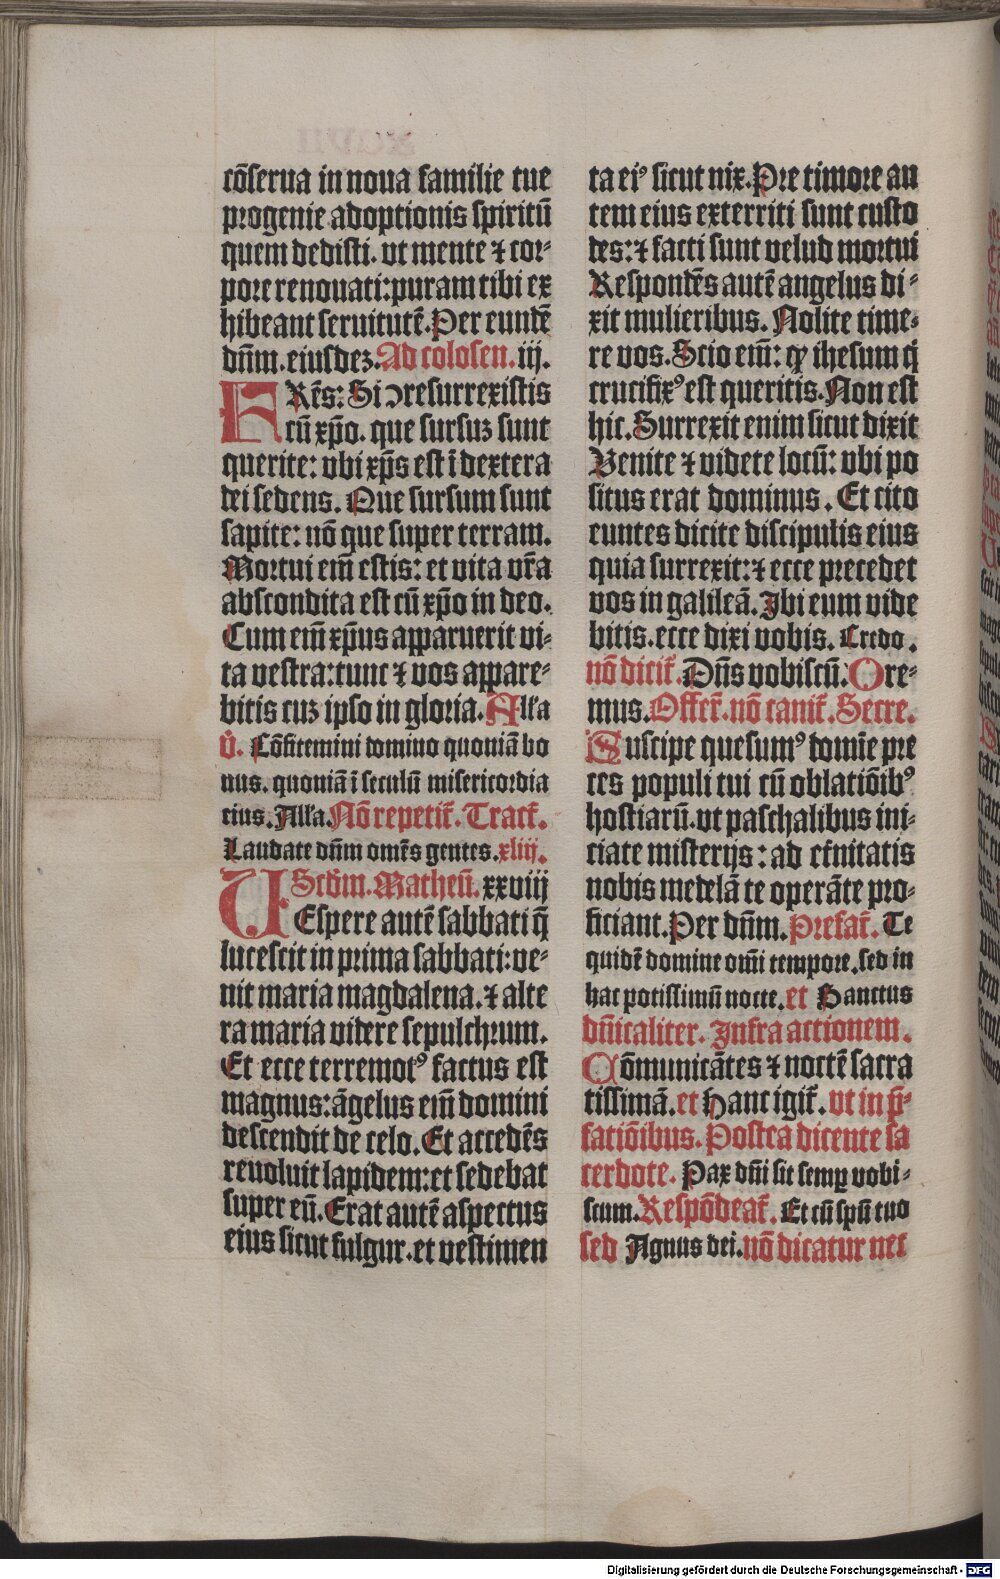 cōserua in noua familie tue
progenie adoptionis spiritū
quem dedisti. vt mente ⁊ cor-
pore renouati: puram tibi ex
hibeant seruitutē. Per eundē
dn̄m. eiusdeꝫ. Ad colosen. iij.
FRēs: Si ↄresurrexistis
cū xp̄o. que sursuꝫ sunt
querite: vbi xp̄s est ī dextera
dei sedens. Que sursum sunt
sapite: nō que super terram.
Mortui em̄ estis: et vita vr̄a
abscondita est cū xp̄o in deo.
Cum em̄ xp̄us apparuerit vi-
ta vestra: tunc ⁊ vos appare-
bitis cuꝫ ipso in gloria. All'a
v̄. Cōfitemini domino quoniā bo
nus. quoniā ī seculū misericordia
eius. All'a. Nō repetit᷑. Tract᷑.
Laudate dn̄m omēs gentes. xliij.
Scd̄m. Matheū. xxviij
VEspere autē sabbati q̄
lucescit in prima sabbati: ve-
nit maria magdalena. ⁊ alte
ra maria videre sepulchrum.
Et ecce terremotꝰ factus est
magnus: āgelus em̄ domini
descendit de celo. Et accedēs
reuoluit lapidem: et sedebat
super eū. Erat autē aspectus
eius sicut fulgur. et vestimen
ta eiꝰ sicut nix. Pre timore au
tem eius exterriti sunt custo
des: ⁊ facti sunt velud mortui
Respondēs autē angelus di-
xit mulieribus. Nolite time-
re vos. Scio em̄: ꝙ ihesum q̄
crucifixꝰ est queritis. Non est
hic. Surrexit enim sicut dixit
Venite ⁊ videte locū: vbi po
situs erat dominus. Et cito
euntes dicite discipulis eius
quia surrexit: ⁊ ecce precedet
vos in galileā. Ibi eum vide
bitis. ecce dixi vobis. Credo.
nō dicit᷑. Dn̄s vobiscū. Ore-
mus. Offert᷑. nō canit᷑. Secre.
Suscipe quesumꝰ domīe pre
ces populi tui cū oblatiōibꝰ
hostiarū. vt paschalibus ini-
ciate misterijs: ad et᷑nitatis
nobis medelā te operāte pro-
ficiant. Per dn̄m. Prefat᷑. Te
quidē domine om̄i tempore. sed in
hac potissimū nocte. et Hanctus
dn̄icaliter. Infra actionem.
Cōmunicātes ⁊ noctē sacra
tissimā. et Hanc igit᷑. vt in p̄-
fatiōibus. Postea dicente sa
cerdote. Pax dn̄i sit semꝑ vobi-
scum. Respōdeat᷑. Et cū spū tuo
sed Agnus dei. nō dicatur nec
Digitalisierung gefördert durch die Deutsche Forschungsgemeinschaft - DFG